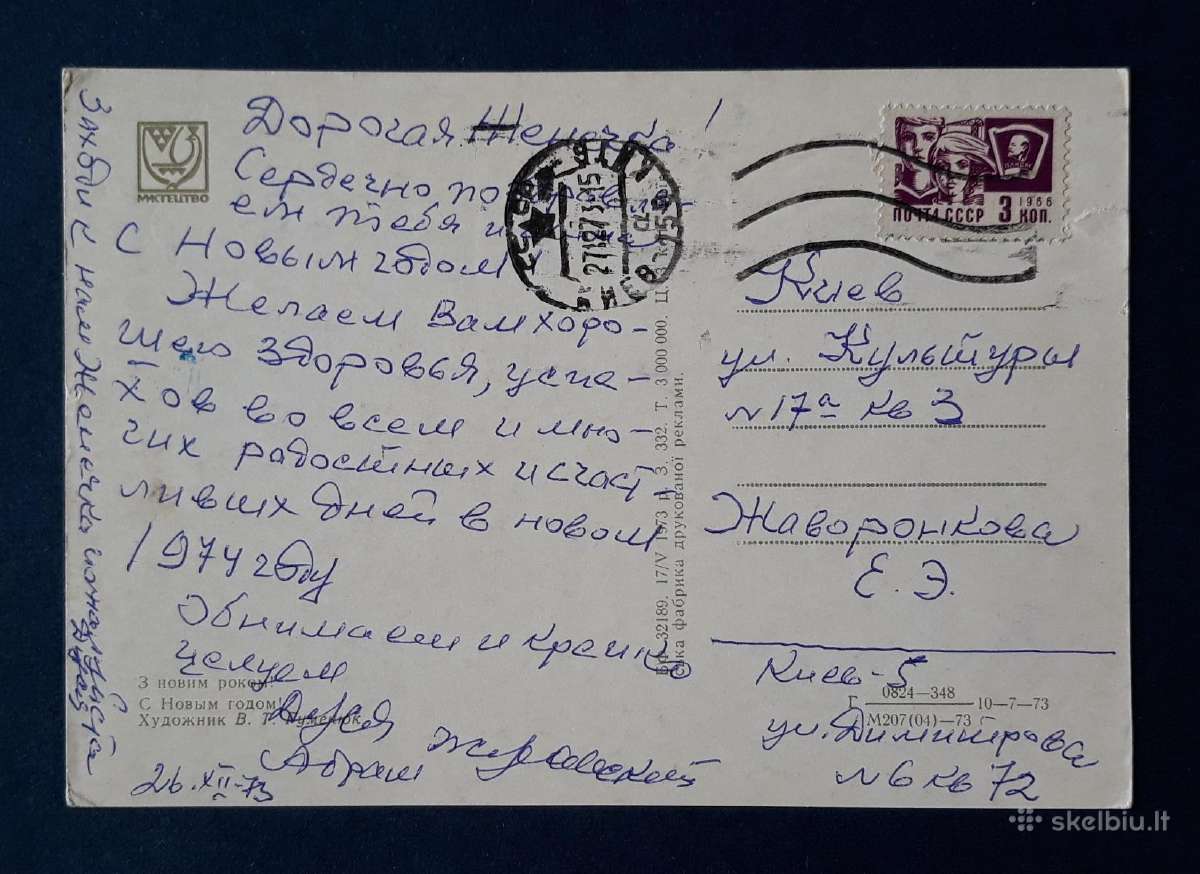 МИСТЕЦТВО
Дорогая Женечка!
Сердечно поздравля-
ем тебя и
с Новым годом
Желаем Вам хоро-
шего здоровья, успе-
хов во всем и мно-
гих радостных и счаст-
ливых дней в новом
1974 году
Обнимаем и крепко
целуем
Абрам
26.XII-73
Заходи к нам Женечка пожалуйста
З новим роком!
С Новым годом!
Художник В. Г.
БФ 32189. 17/V 1973 р. З. 332. Т. 3 000 000. Ц.
фабрика друкованої реклами.
27 12 73 15
ПОЧТА СССР 3 КОП.
1966
ВЛКСМ
Киев
ул. Культуры
N 17а кв 3
Жаворонкова
Е. Э.
Киев-5
ул. Димитрова
N 6 кв 72
Г 0824—348 10—7—73
М207(04)—73
skelbiu.lt